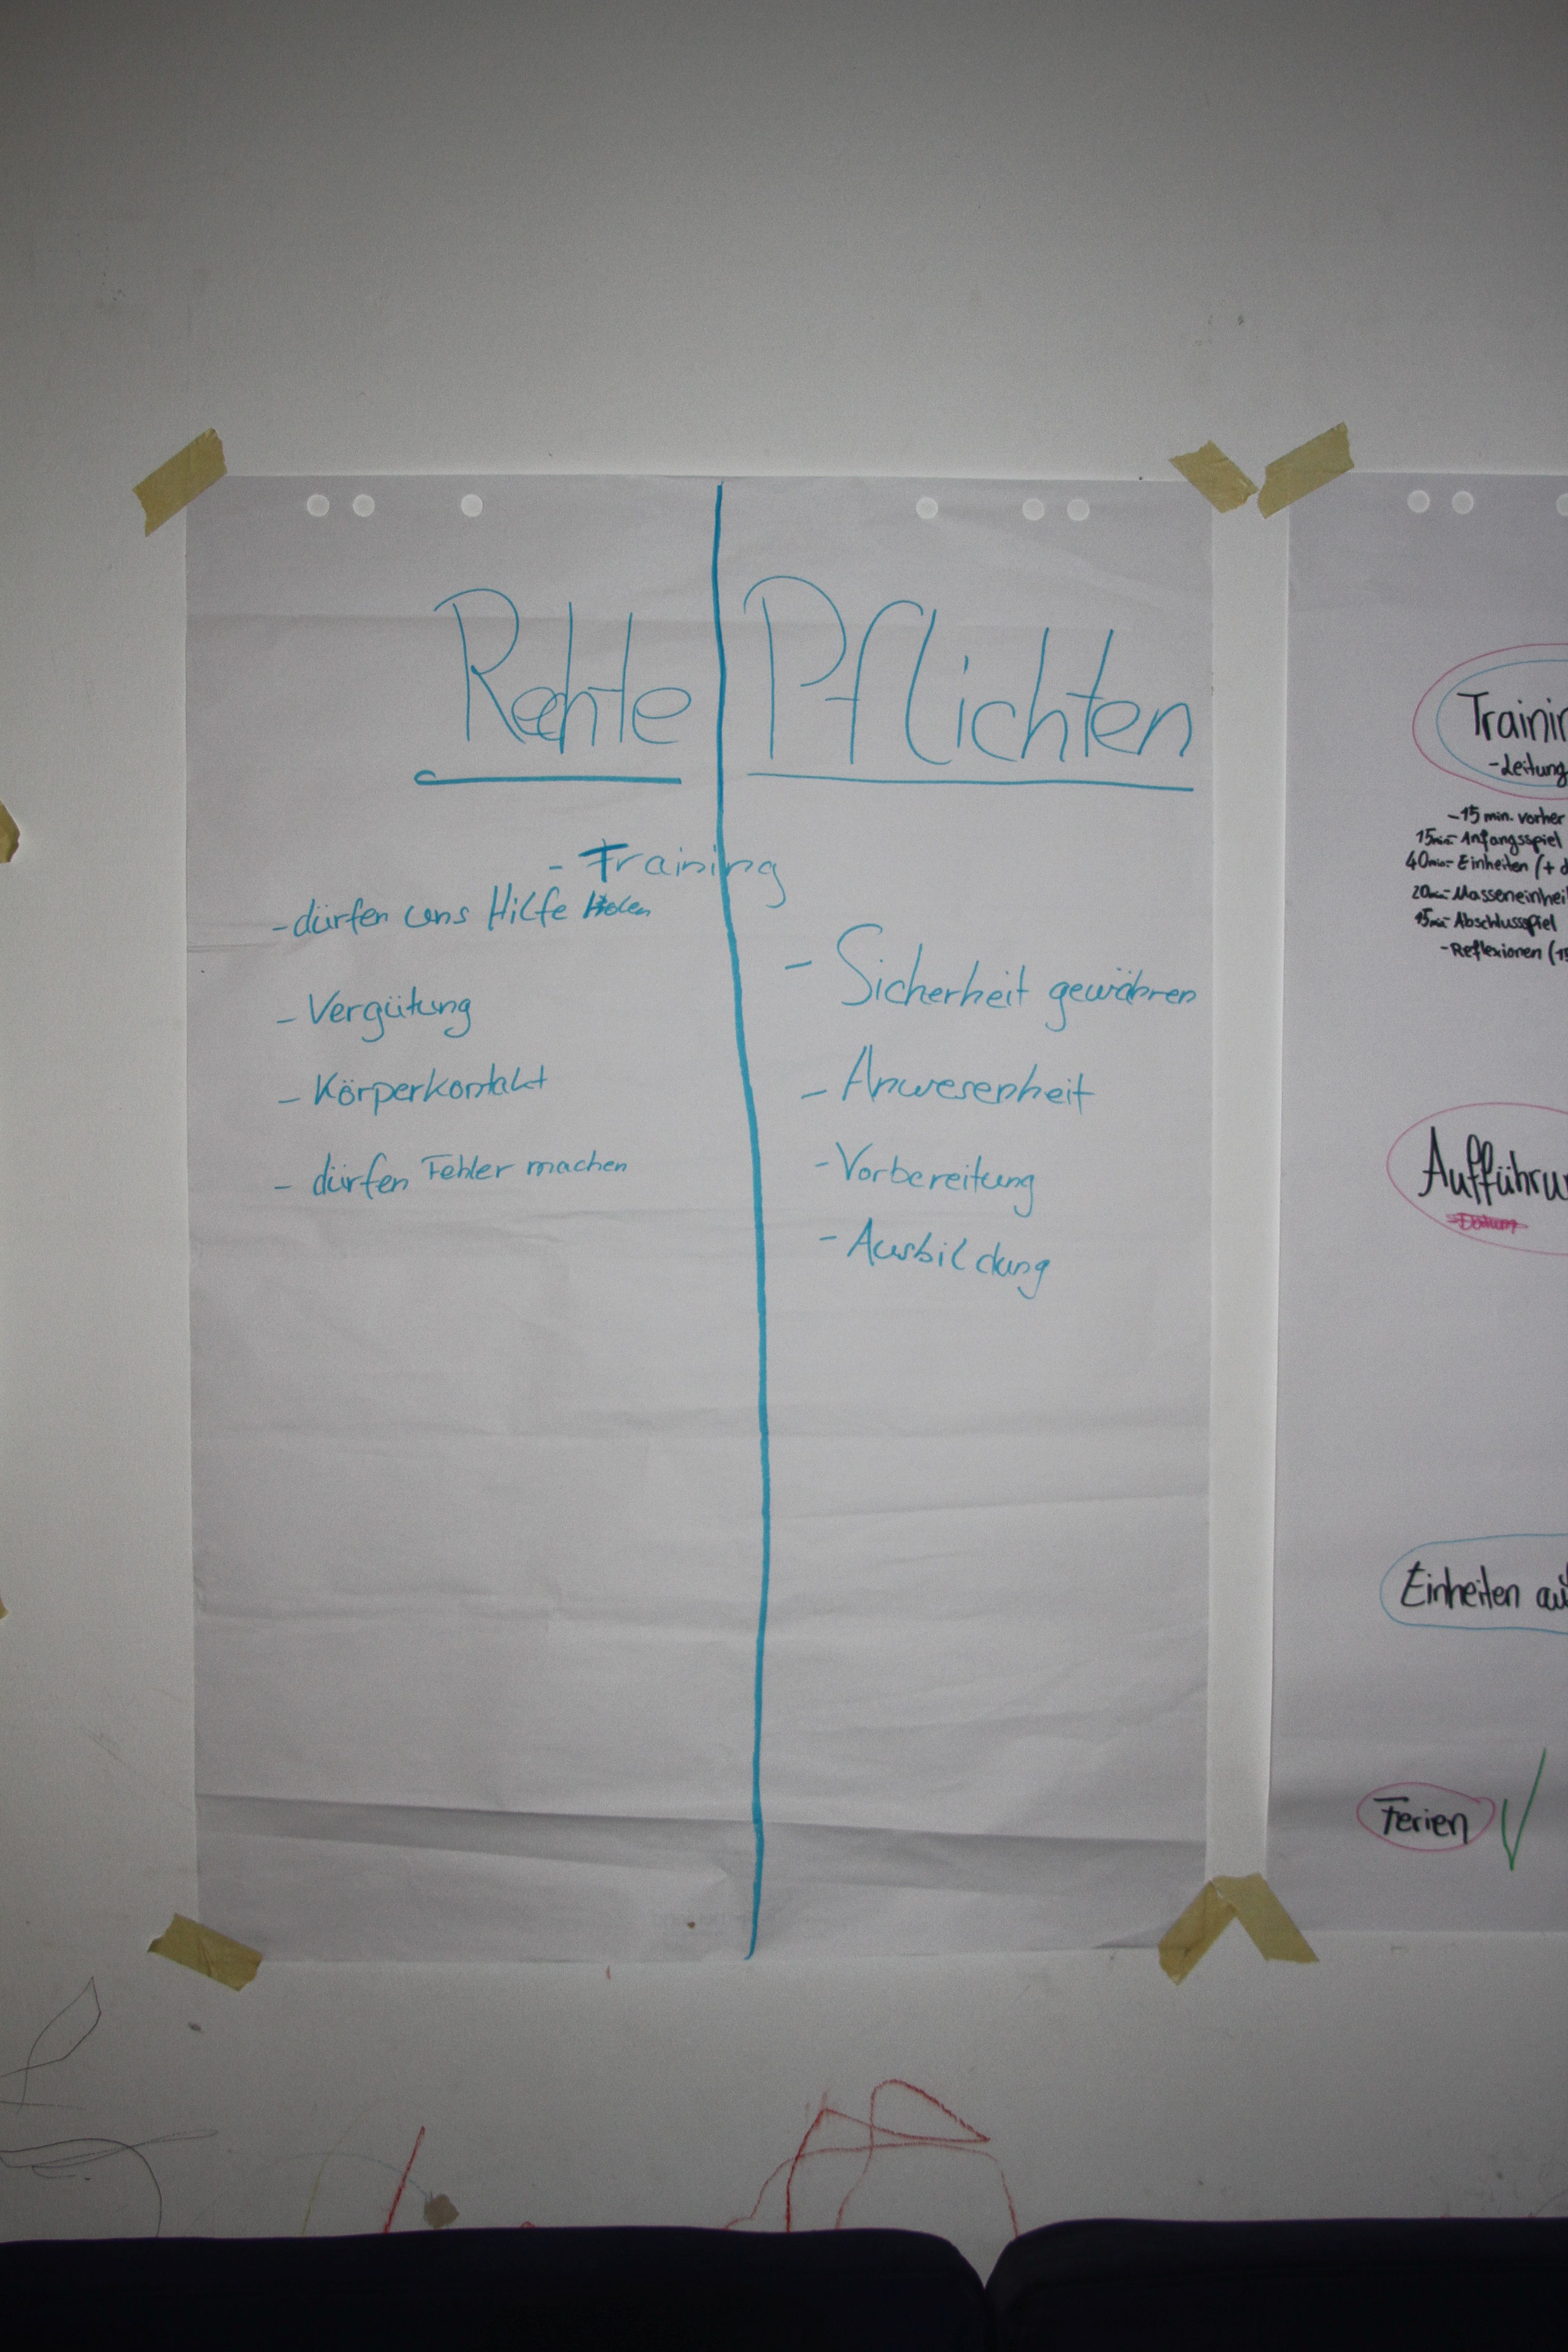 Rechte
Pflichten
- Training
- dürfen uns Hilfe holen
- Vergütung
- Körperkontakt
- dürfen Fehler machen
- Sicherheit gewähren
- Anwesenheit
- Vorbereitung
- Ausbildung
Trainin
- Leitung
- 15 min. vorher
15min- Anfangsspiel
40min- Einheiten (+ d
20min- Masseneinhei
15min- Abschlussspiel
- Reflexionen (15
Aufführu
Datum
Einheiten au
Ferien